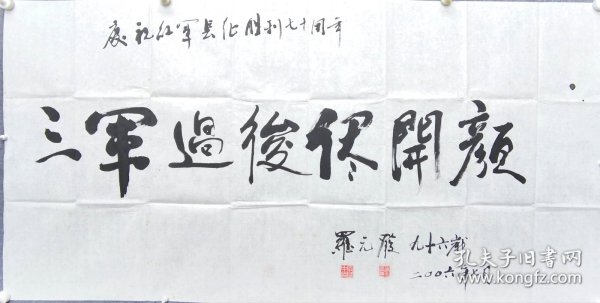 庆祝红军长征胜利七十周年
三軍過後尽開颜
羅元發 九十六歲
二〇〇六年七月
孔夫子旧书网
www.kongfz.com